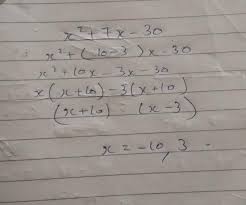 x² + 7x - 30
x² + (10-3)x - 30
x² + 10x - 3x - 30
x(x+10) - 3(x+10)
(x+10) (x-3)
x = -10, 3